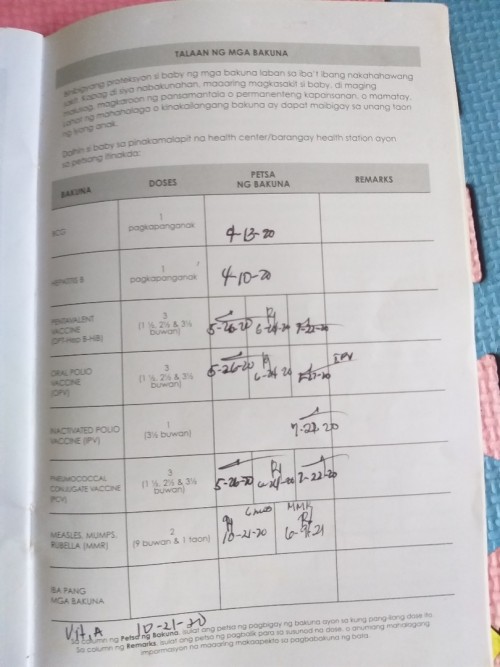 TALAAN NG MGA BAKUNA
Nabibigyang proteksyon si baby ng mga bakuna laban sa iba't ibang nakahahawang
sakit. Kapag di siya nabakunahan, maaaring magkasakit si baby, di maging
malusog, magkaroon ng pansamantala o permanenteng kapansanan, o mamatay.
Lahat ng mahahalaga o kinakailangang bakuna ay dapat maibigay sa unang taon
ng iyong anak.
Dalhin si baby sa pinakamalapit na health center/barangay health station ayon
sa petsang itinakda:
BAKUNA DOSES PETSA NG BAKUNA REMARKS
BCG 1 pagkapanganak 4-13-20
HEPATITIS B 1 pagkapanganak 4-10-20
PENTAVALENT VACCINE (DPT-Hep B-HiB) 3 (1 ½, 2½ & 3½ buwan) 5-26-20 6-24-20 7-22-20
ORAL POLIO VACCINE (OPV) 3 (1 ½, 2½ & 3½ buwan) 5-26-20 6-24-20 IPV
INACTIVATED POLIO VACCINE (IPV) 1 (3½ buwan) 7-22-20
PNEUMOCOCCAL CONJUGATE VACCINE (PCV) 3 (1 ½, 2½ & 3½ buwan) 5-26-20 6-24-20 7-22-20
MEASLES, MUMPS, RUBELLA (MMR) 2 (9 buwan & 1 taon) 10-21-20 MMR
IBA PANG MGA BAKUNA
Vit. A 10-21-20
Sa column ng Petsa ng Bakuna, sulat ang petsa ng pagbigay ng bakuna ayon sa kung pang-ilang dose ito.
Sa column ng Remarks, sulat ang petsa ng pagbalik para sa susunod na dose, o anumang mahalagang
impormasyon na maaaring makaapekto sa pagbabakuna ng bata.